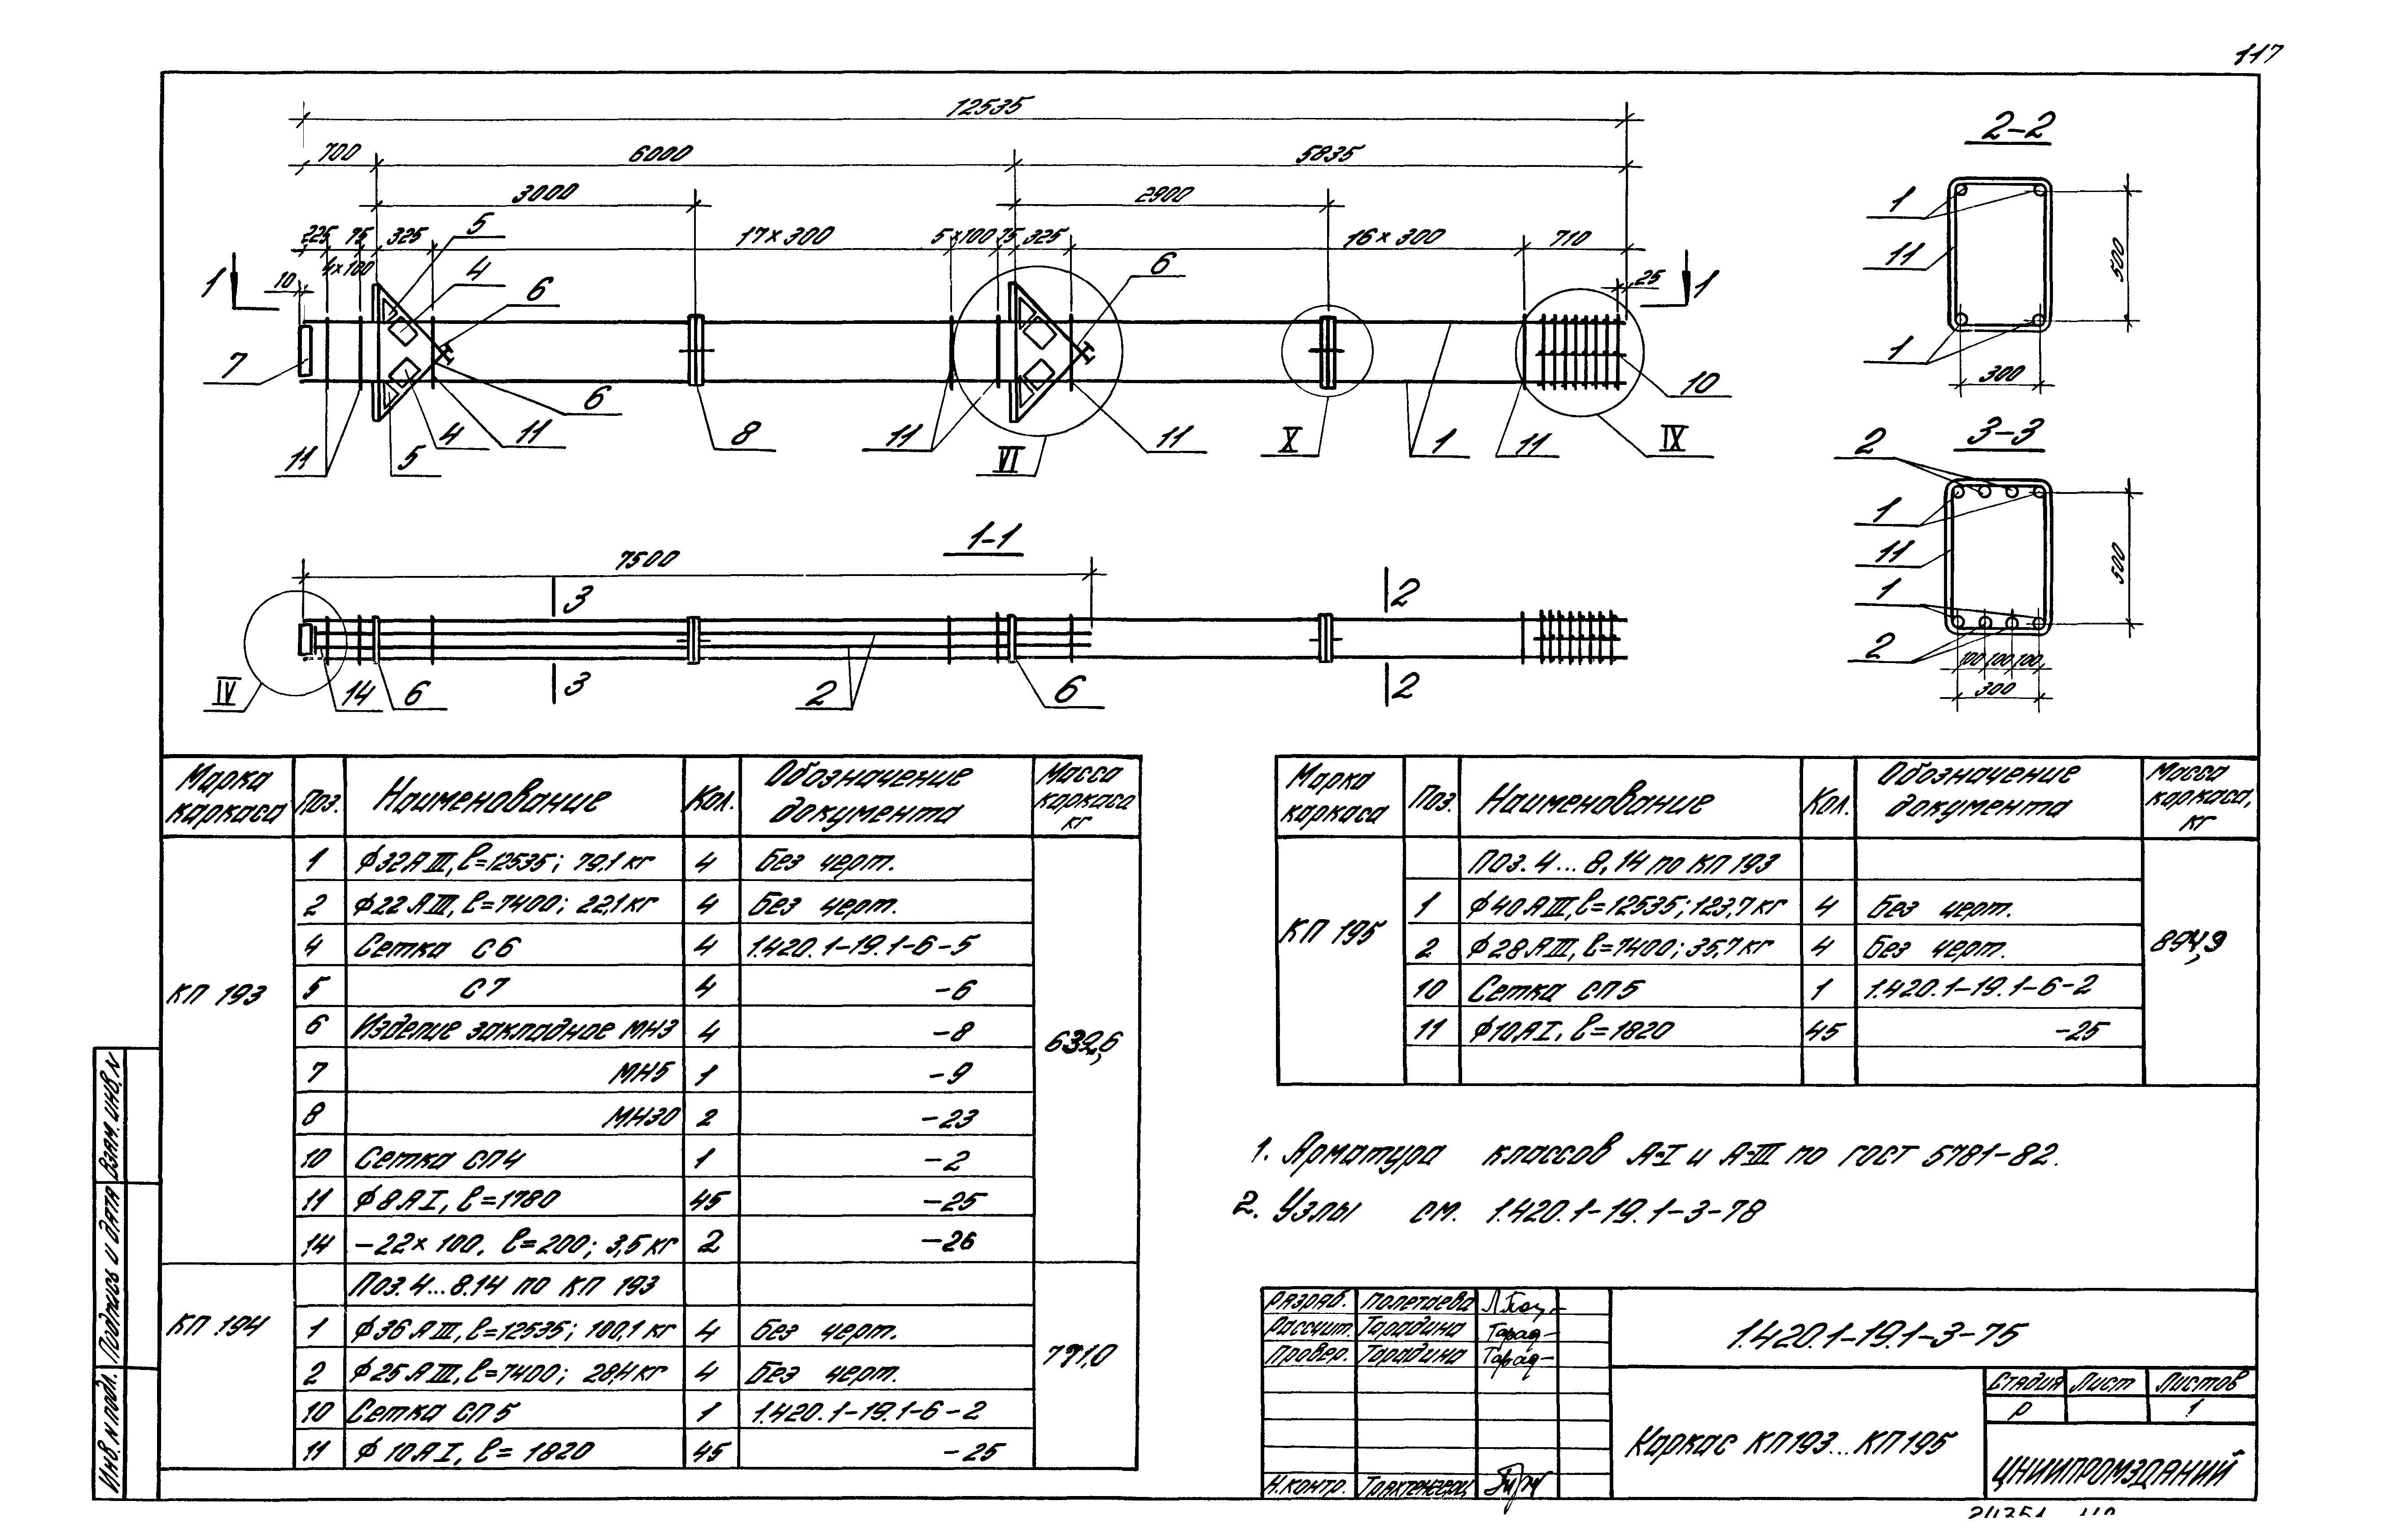 117
12535
700 6000 5835
3000 2900
225 75 325 17×300 5×100 75 325 16×300 710
4×100
10 25
1 1
5 4 6 6
7 11 5 4 11 6 8 11 VI 11 X 1 11 IX 10
2-2
1
11
1
500
300
3-3
2
1
11
1
2
500
100 100 100
300
1-1
7500
3 2
IV 14 6 3 2 6 2
Марка каркаса Поз. Наименование Кол. Обозначение документа Масса каркаса кг
КП 193 639,6
1 ϕ32АIII, ℓ=12535; 79,1 кг 4 Без черт.
2 ϕ22АIII, ℓ=7400; 22,1 кг 4 Без черт.
4 Сетка С6 4 1.420.1-19.1-6-5
5 С7 4 -6
6 Изделие закладное МН3 4 -8
7 МН5 1 -9
8 МН30 2 -23
10 Сетка СП4 1 -2
11 ϕ8АI, ℓ=1780 45 -25
14 -22×100, ℓ=200; 3,5 кг 2 -26
КП 194 771,0
Поз. 4...8.14 по КП 193
1 ϕ36АIII, ℓ=12535; 100,1 кг 4 Без черт.
2 ϕ25АIII, ℓ=7400; 28,4 кг 4 Без черт.
10 Сетка СП5 1 1.420.1-19.1-6-2
11 ϕ10АI, ℓ=1820 45 -25
Марка каркаса Поз. Наименование Кол. Обозначение документа Масса каркаса, кг
КП 195 894,9
Поз. 4...8,14 по КП 193
1 ϕ40АIII, ℓ=12535; 123,7 кг 4 Без черт.
2 ϕ28АIII, ℓ=7400; 35,7 кг 4 Без черт.
10 Сетка СП5 1 1.420.1-19.1-6-2
11 ϕ10АI, ℓ=1820 45 -25
1. Арматура классов А-I и А-III по ГОСТ 5781-82.
2. Узлы см. 1.420.1-19.1-3-78
Разраб. Полетаева
Рассчит. Тарадина
Провер. Тарадина
Н.контр.
1.420.1-19.1-3-75
Каркас КП193...КП195
Стадия Лист Листов
Р 1
ЦНИИПРОМЗДАНИЙ
Инв. N подл. Подпись и дата Взам. инв. N